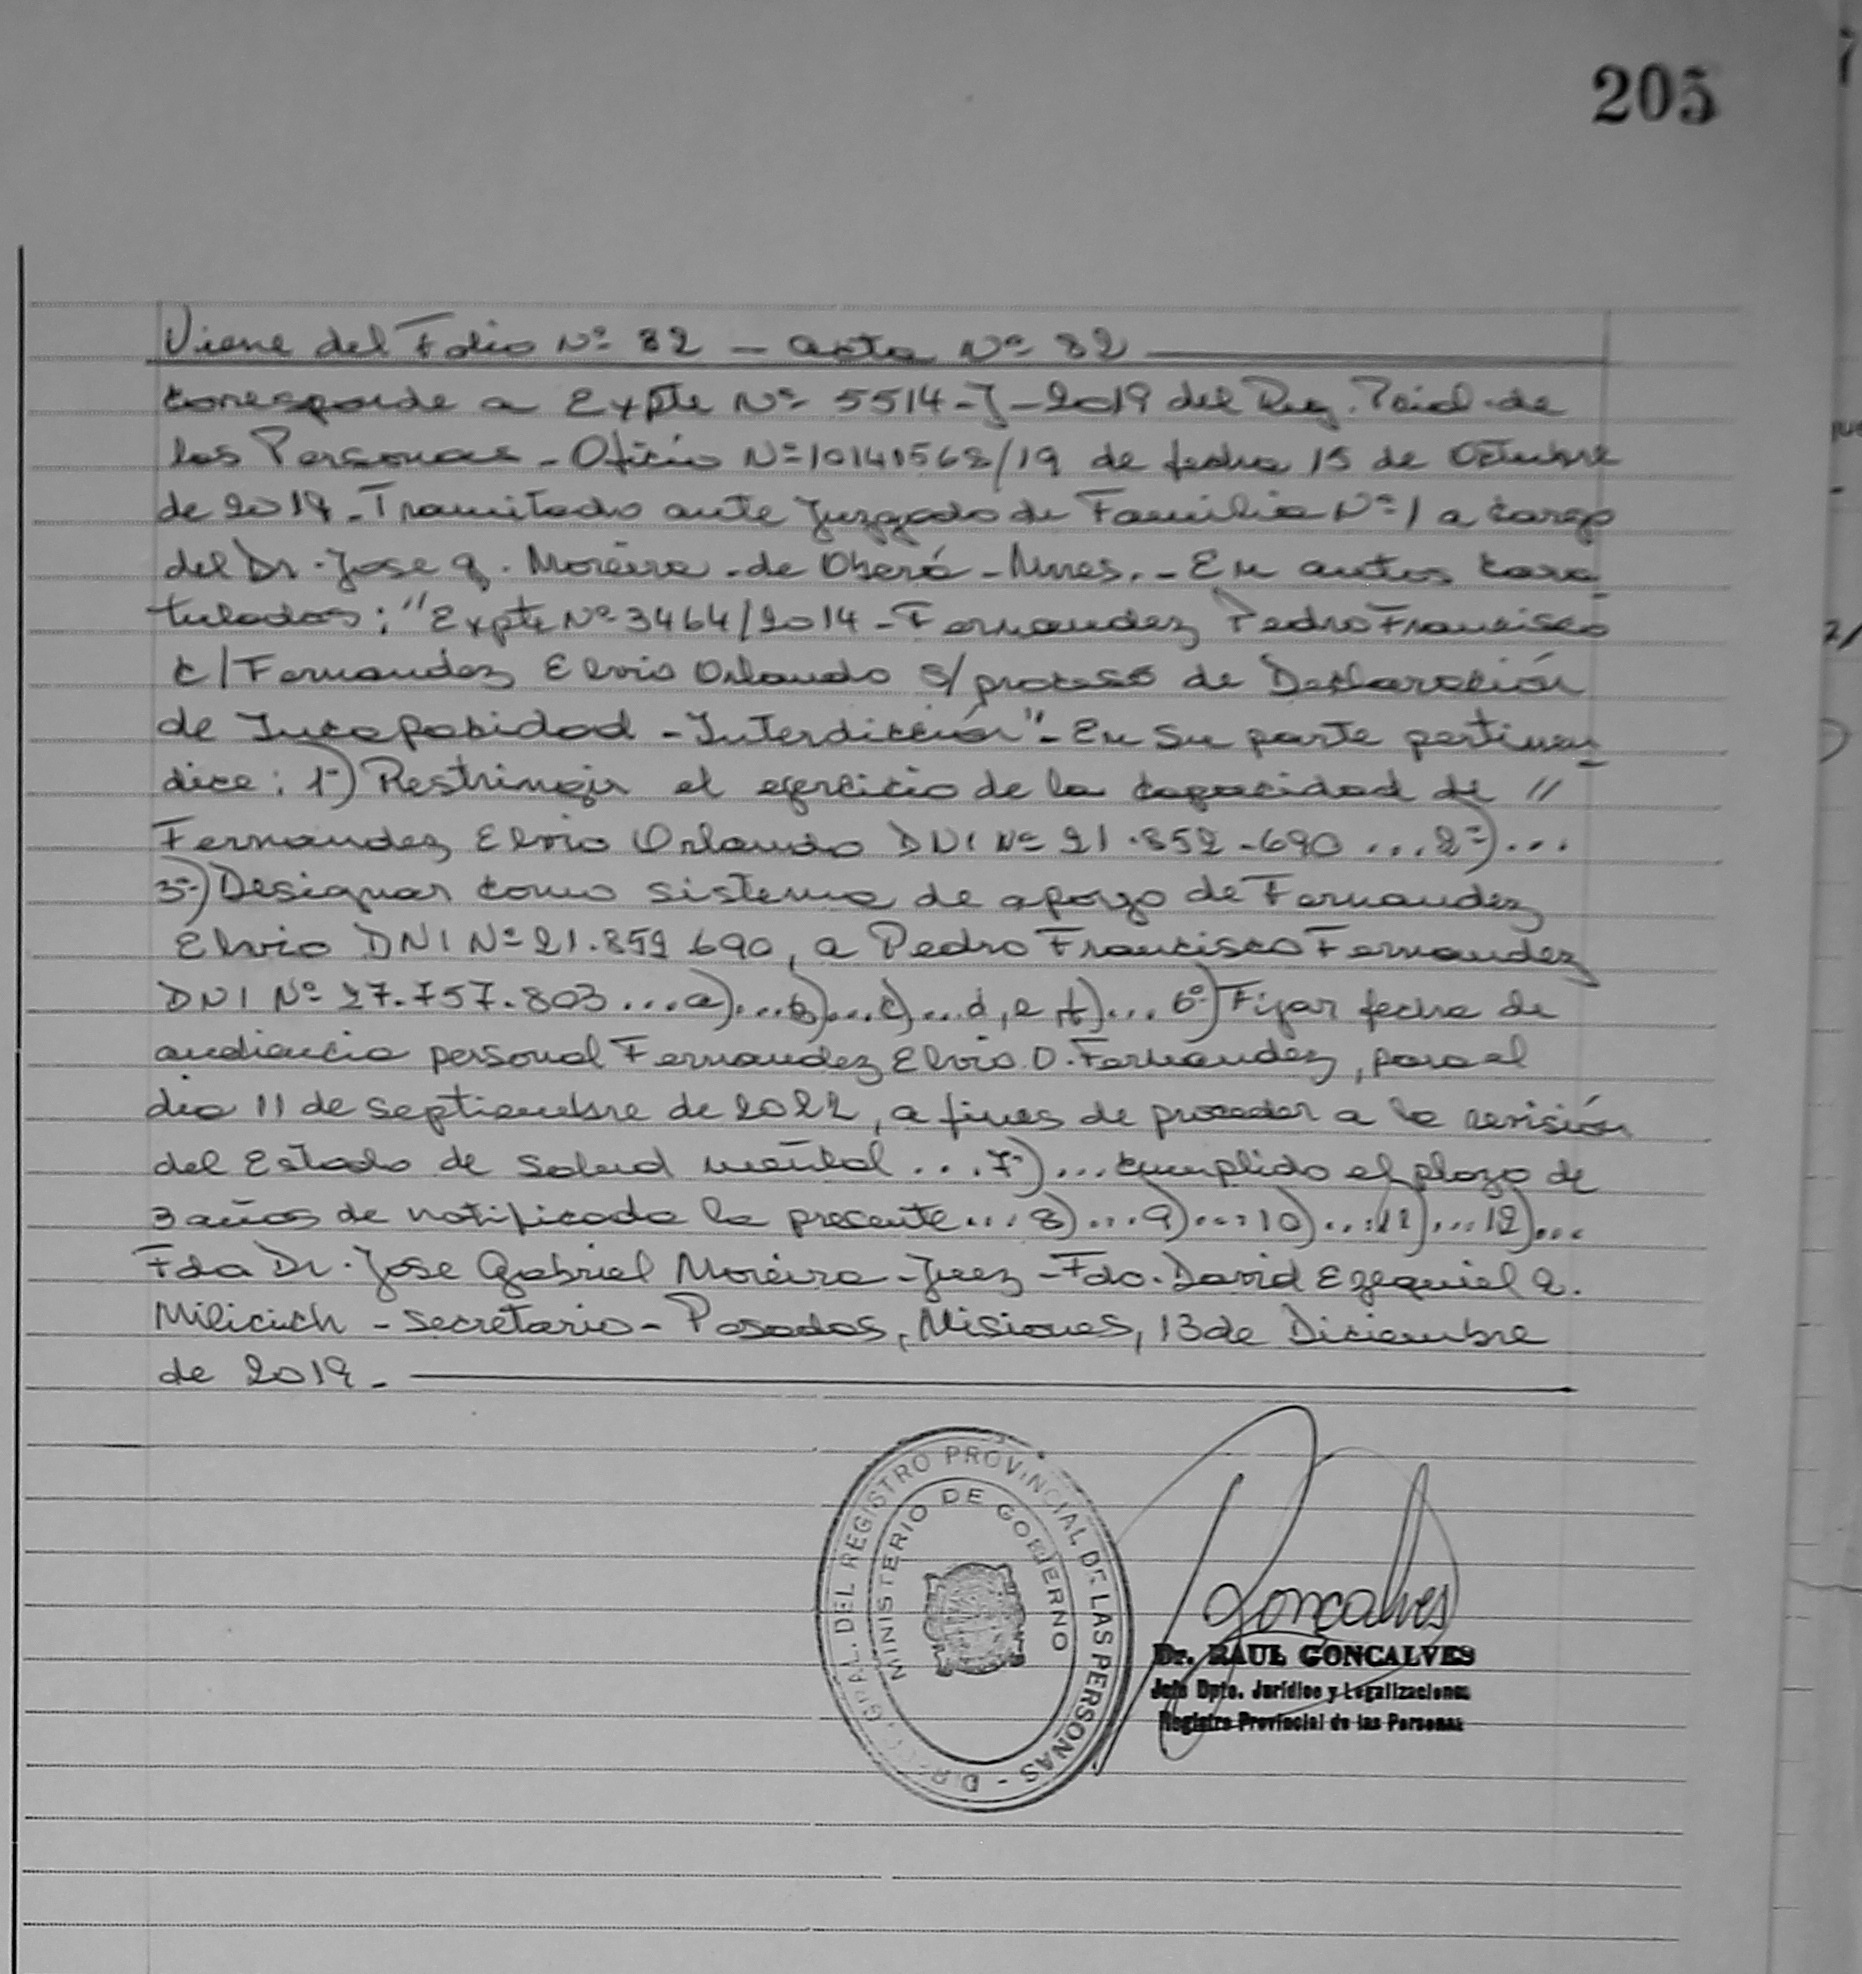 205
Viene del Folio Nº 82 - acta Nº 82
corresponde a Expte Nº 5514-J-2019 del Reg. Pcial. de
las Personas - Oficio Nº 10141568/19 de fecha 15 de Octubre
de 2019. Tramitado ante Juzgado de Familia Nº 1 a cargo
del Dr. Jose G. Moreira - de Oberá - Mnes. - En autos cara
tulados: "Expte Nº 3464/2014 - Fernandez Pedro Francisco
c/ Fernandez Elvio Orlando s/ proceso de Declaración
de Incapacidad - Interdicción" - En su parte pertinen
dice: 1º) Restringir el ejercicio de la capacidad de //
Fernandez Elvio Orlando DNI Nº 21.852.690 ... 2º) ...
3º) Designar como sistema de apoyo de Fernandez
Elvio DNI Nº 21.852.690, a Pedro Francisco Fernandez
DNI Nº 27.757.803 ... a) ... b) ... c) ... d, e, f) ... 6º) Fijar fecha de
audiencia personal Fernandez Elvio O. Fernandez, para el
dia 11 de septiembre de 2022, a fines de proceder a la revisión
del Estado de Salud mental ... 7º) ... cumplido el plazo de
3 años de notificada la presente ... 8) ... 9) ... 10) ... 11) ... 12) ...
Fdo Dr. Jose Gabriel Moreira - Juez - Fdo. David Ezequiel
Milicich - Secretario - Posadas, Misiones, 13 de Diciembre
de 2019.
GRAL. DEL REGISTRO PROVINCIAL DE LAS PERSONAS -
MINISTERIO DE GOBIERNO
Goncalves
Dr. RAUL GONCALVES
Jefe Dpto. Jurídico y Legalizaciones
Registro Provincial de las Personas